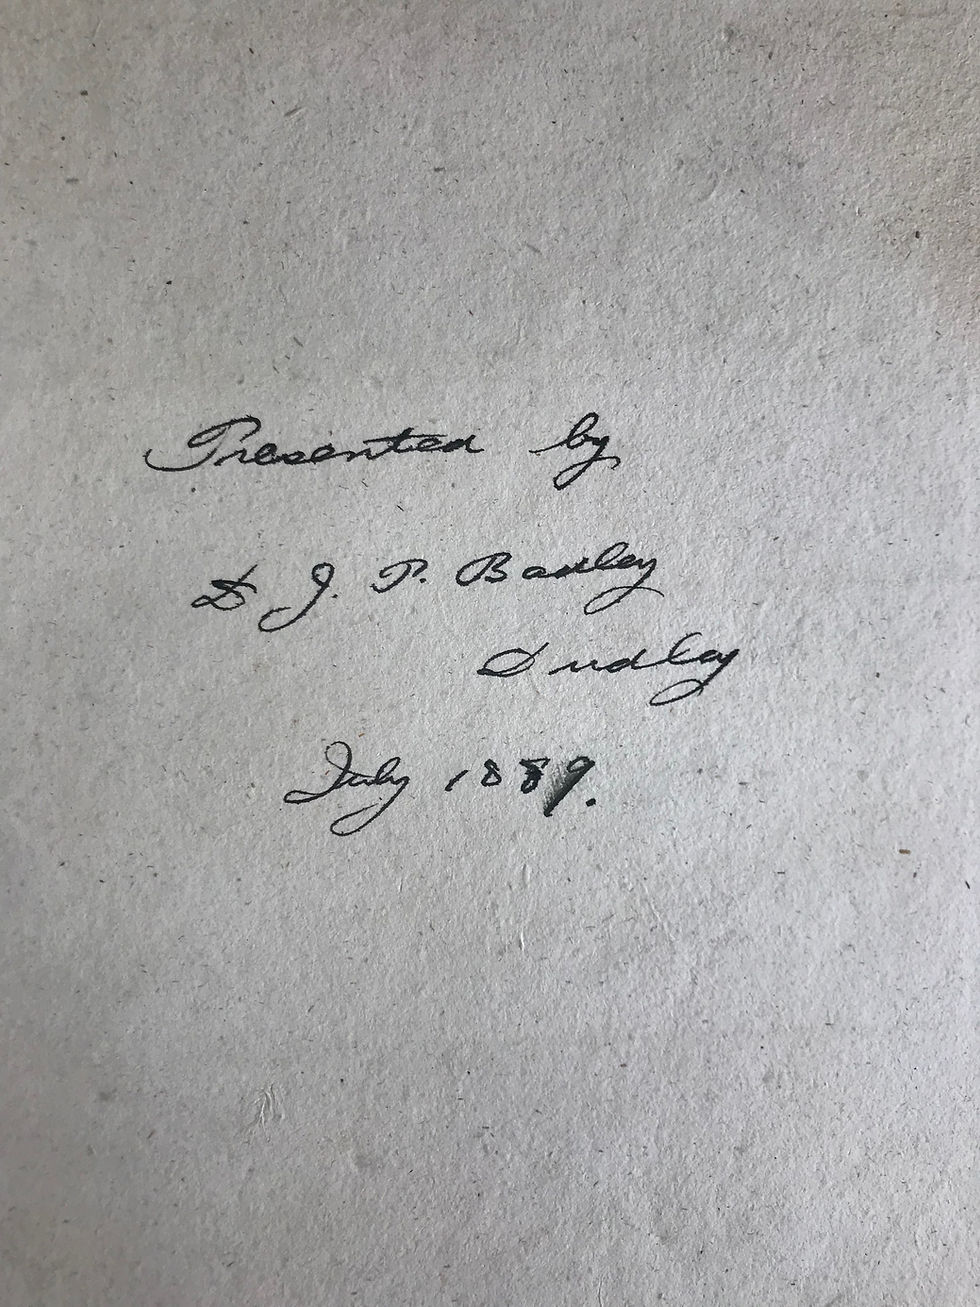 Presented by
D J. P. Badley
Dudley
July 1889.